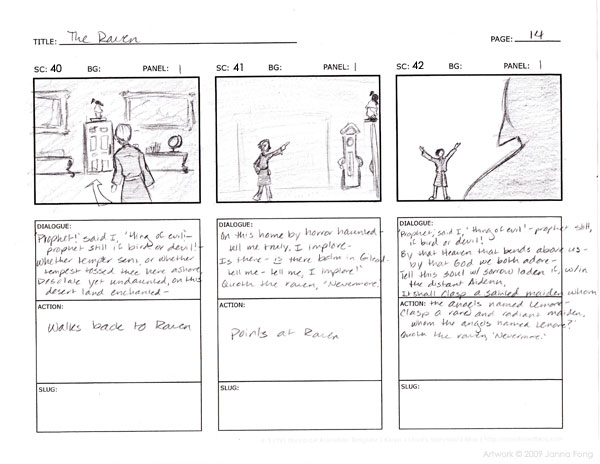 TITLE: The Raven
PAGE: 14
SC: 40 BG: PANEL: 1
DIALOGUE:
"Prophet!" said I, "thing of evil -
prophet still if bird or devil! -
Whether tempter sent, or whether
tempest tossed thee here ashore,
Desolate yet undaunted, on this
desert land enchanted -
ACTION:
Walks back to Raven
SLUG:
SC: 41 BG: PANEL: 1
DIALOGUE:
On this home by horror haunted -
tell me truly, I implore -
Is there - is there balm in Gilead -
tell me - tell me, I implore!"
Quoth the raven, "Nevermore."
ACTION:
Points at Raven
SLUG:
SC: 42 BG: PANEL: 1
DIALOGUE:
"Prophet," said I, "thing of evil" - prophet still,
if bird or devil!
By that Heaven that bends above us -
by that God we both adore -
Tell this soul w/ sorrow laden if, w/in
the distant Aidenn,
It shall clasp a sainted maiden whom
ACTION: the angels named Lenore -
Clasp a rare and radiant maiden,
whom the angels named Lenore?"
Quoth the raven, "Nevermore."
SLUG:
Artwork © 2009 Janna Fong